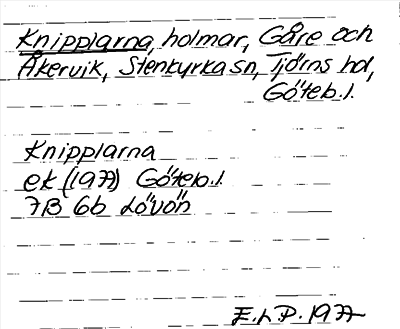 Knipplarna, holmar, Gåre och
Åkervik, Stenkyrka sn, Tjörns hd,
Göteb.l.
Knipplarna
ek (1977) Göteb.l.
7B 6b Lövön
E.L.P. 1977